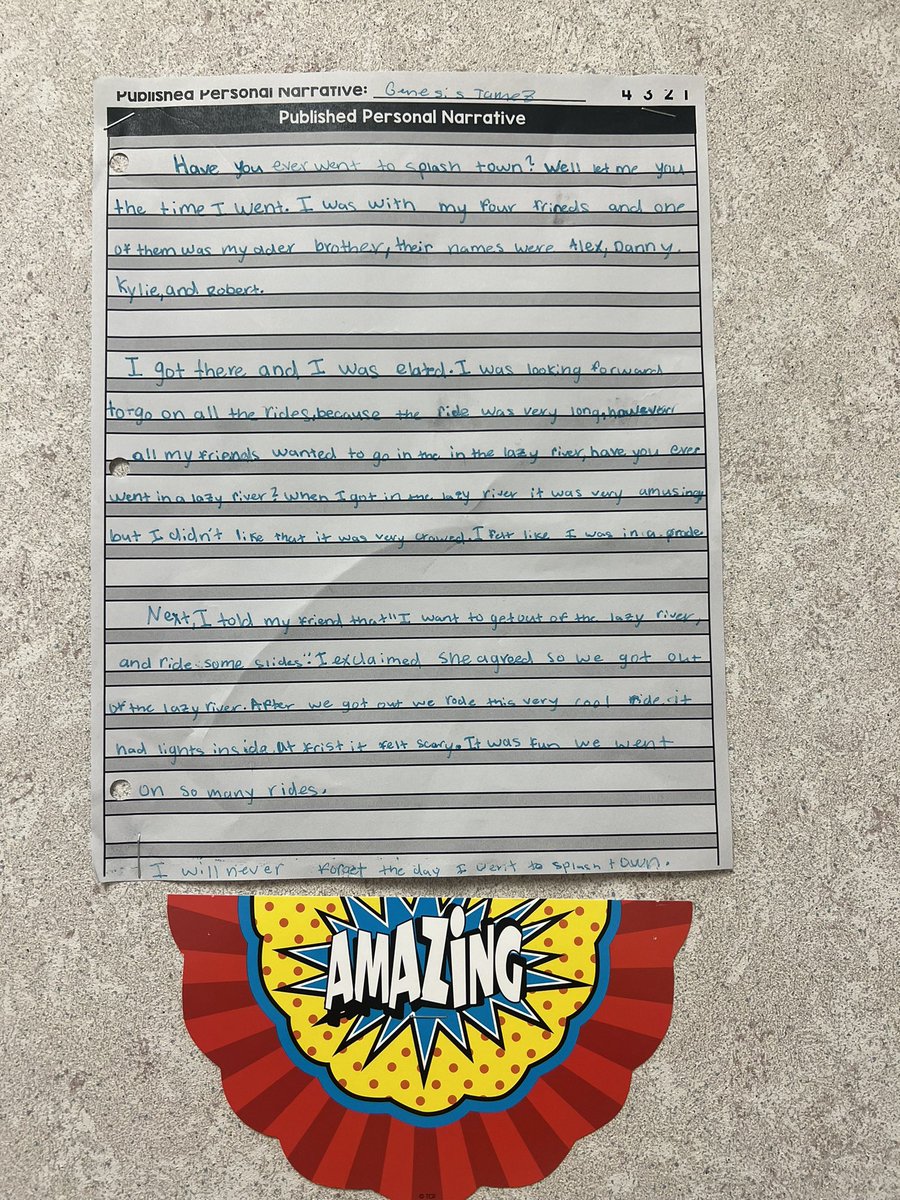 Published Personal Narrative: Genesis Jamez 4 3 2 1
Published Personal Narrative
Have you ever went to splash town? Well let me you
the time I went. I was with my four frineds and one
of them was my older brother, their names were Alex, Danny,
Kylie, and Robert.
I got there and I was elated. I was looking forward
to go on all the rides, because the ride was very long, however
all my friends wanted to go in the in the lazy river, have you ever
went in a lazy river? When I got in the lazy river it was very amusing
but I didn't like that it was very crowed. I felt like I was in a
Next, I told my friend that "I want to get out of the lazy river,
and ride some slides". I exclaimed she agreed so we got out
of the lazy river. After we got out we rode this very cool ride it
had lights inside. at frist it felt scary. It was fun we went
on so many rides.
I will never forget the day I went to splash town.
AMAZING
© TCR